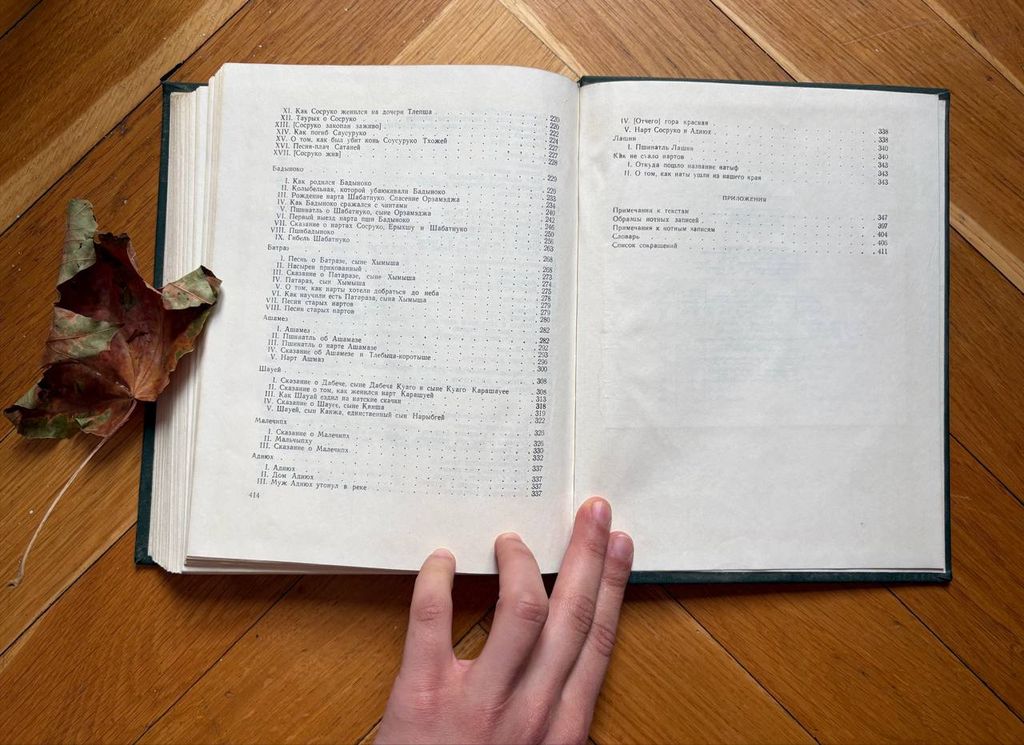 XI. Как Сосруко женился на дочери Тлепша 220
XII. Таурых о Сосруко 220
XIII. [Сосруко закопан заживо] 222
XIV. Как погиб Саусуруко 224
XV. О том, как был убит конь Соусуруко Тхожей 227
XVI. Песня-плач Сатаней 227
XVII. [Сосруко жив] 228
Бадыноко 229
I. Как родился Бадыноко 229
II. Колыбельная, которой убаюкивали Бадыноко 233
III. Рождение нарта Шабатнуко. Спасение Орзамэджа 234
IV. Как Бадыноко сражался с чинтами 240
V. Пшинатль о Шабатнуко, сыне Орзамэджа 242
VI. Первый выезд нарта пши Бадыноко 246
VII. Сказание о нартах Сосруко, Ерыхшу и Шабатнуко 250
VIII. Пшибадыноко 256
IX. Гибель Шабатнуко 263
Батраз 268
I. Песнь о Батразе, сыне Хымыша 268
II. Насырен прикованный 273
III. Сказание о Патаразе, сыне Хымыша 274
IV. Патараз, сын Хымыша 275
V. О том, как нарты хотели добраться до неба 278
VI. Как научили есть Патараза, сына Хымыша 279
VII. Песня старых нартов 279
VIII. Песня старых нартов 280
Ашамез 282
I. Ашамез 282
II. Пшинатль об Ашамазе 292
III. Пшинатль о нарте Ашамазе 293
IV. Сказание об Ашамезе и Тлебыца-коротыше 296
V. Нарт Ашмаз 300
Шауей 308
I. Сказание о Дабече, сыне Дабеча Куаго и сыне Куаго Карашауее 308
II. Сказание о том, как женился нарт Карашуей 313
III. Как Шауай ездил на натские скачки 318
IV. Сказание о Шауее, сыне Канша 319
V. Шауей, сын Канжа, единственный сын Нарыбгей 322
Малечипх 326
I. Сказание о Малечипх 326
II. Мальчыпху 330
III. Сказание о Малечипх 332
Адиюх 337
I. Адиюх 337
II. Дом Адиюх 337
III. Муж Адиюх утонул в реке 337
414
IV. [Отчего] гора красная 338
V. Нарт Сосруко и Адиюх 338
Лашин 340
I. Пшинатль Лашин 340
Как не стало нартов 343
I. Откуда пошло название натыф 343
II. О том, как наты ушли из нашего края 343
ПРИЛОЖЕНИЯ
Примечания к текстам 347
Образцы нотных записей 397
Примечания к нотным записям 404
Словарь 406
Список сокращений 411